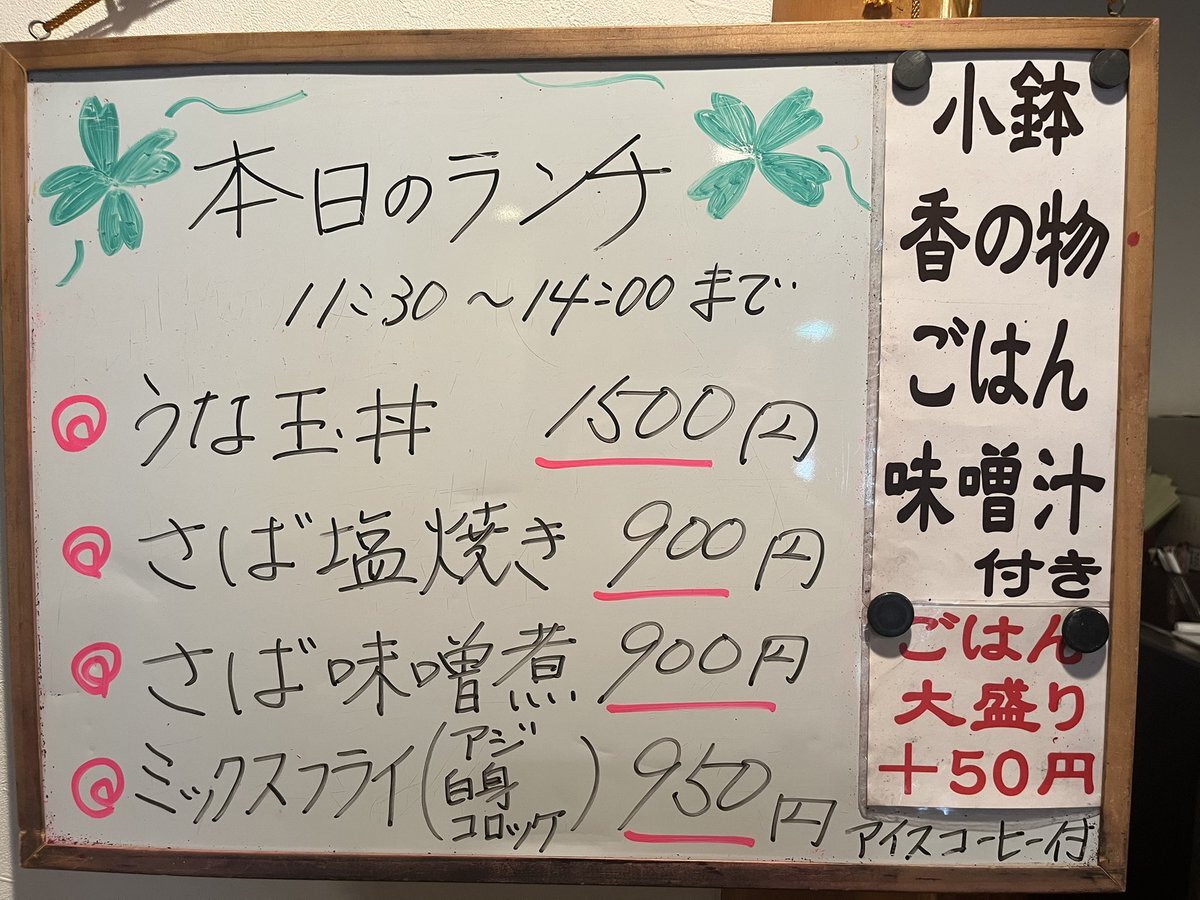 本日のランチ
11:30～14:00まで
うな玉丼 1500円
さば塩焼き 900円
さば味噌煮 900円
ミックスフライ(アジ
白身
コロッケ) 950円
小鉢
香の物
ごはん
味噌汁
付き
ごはん
大盛り
+50円
アイスコーヒー付